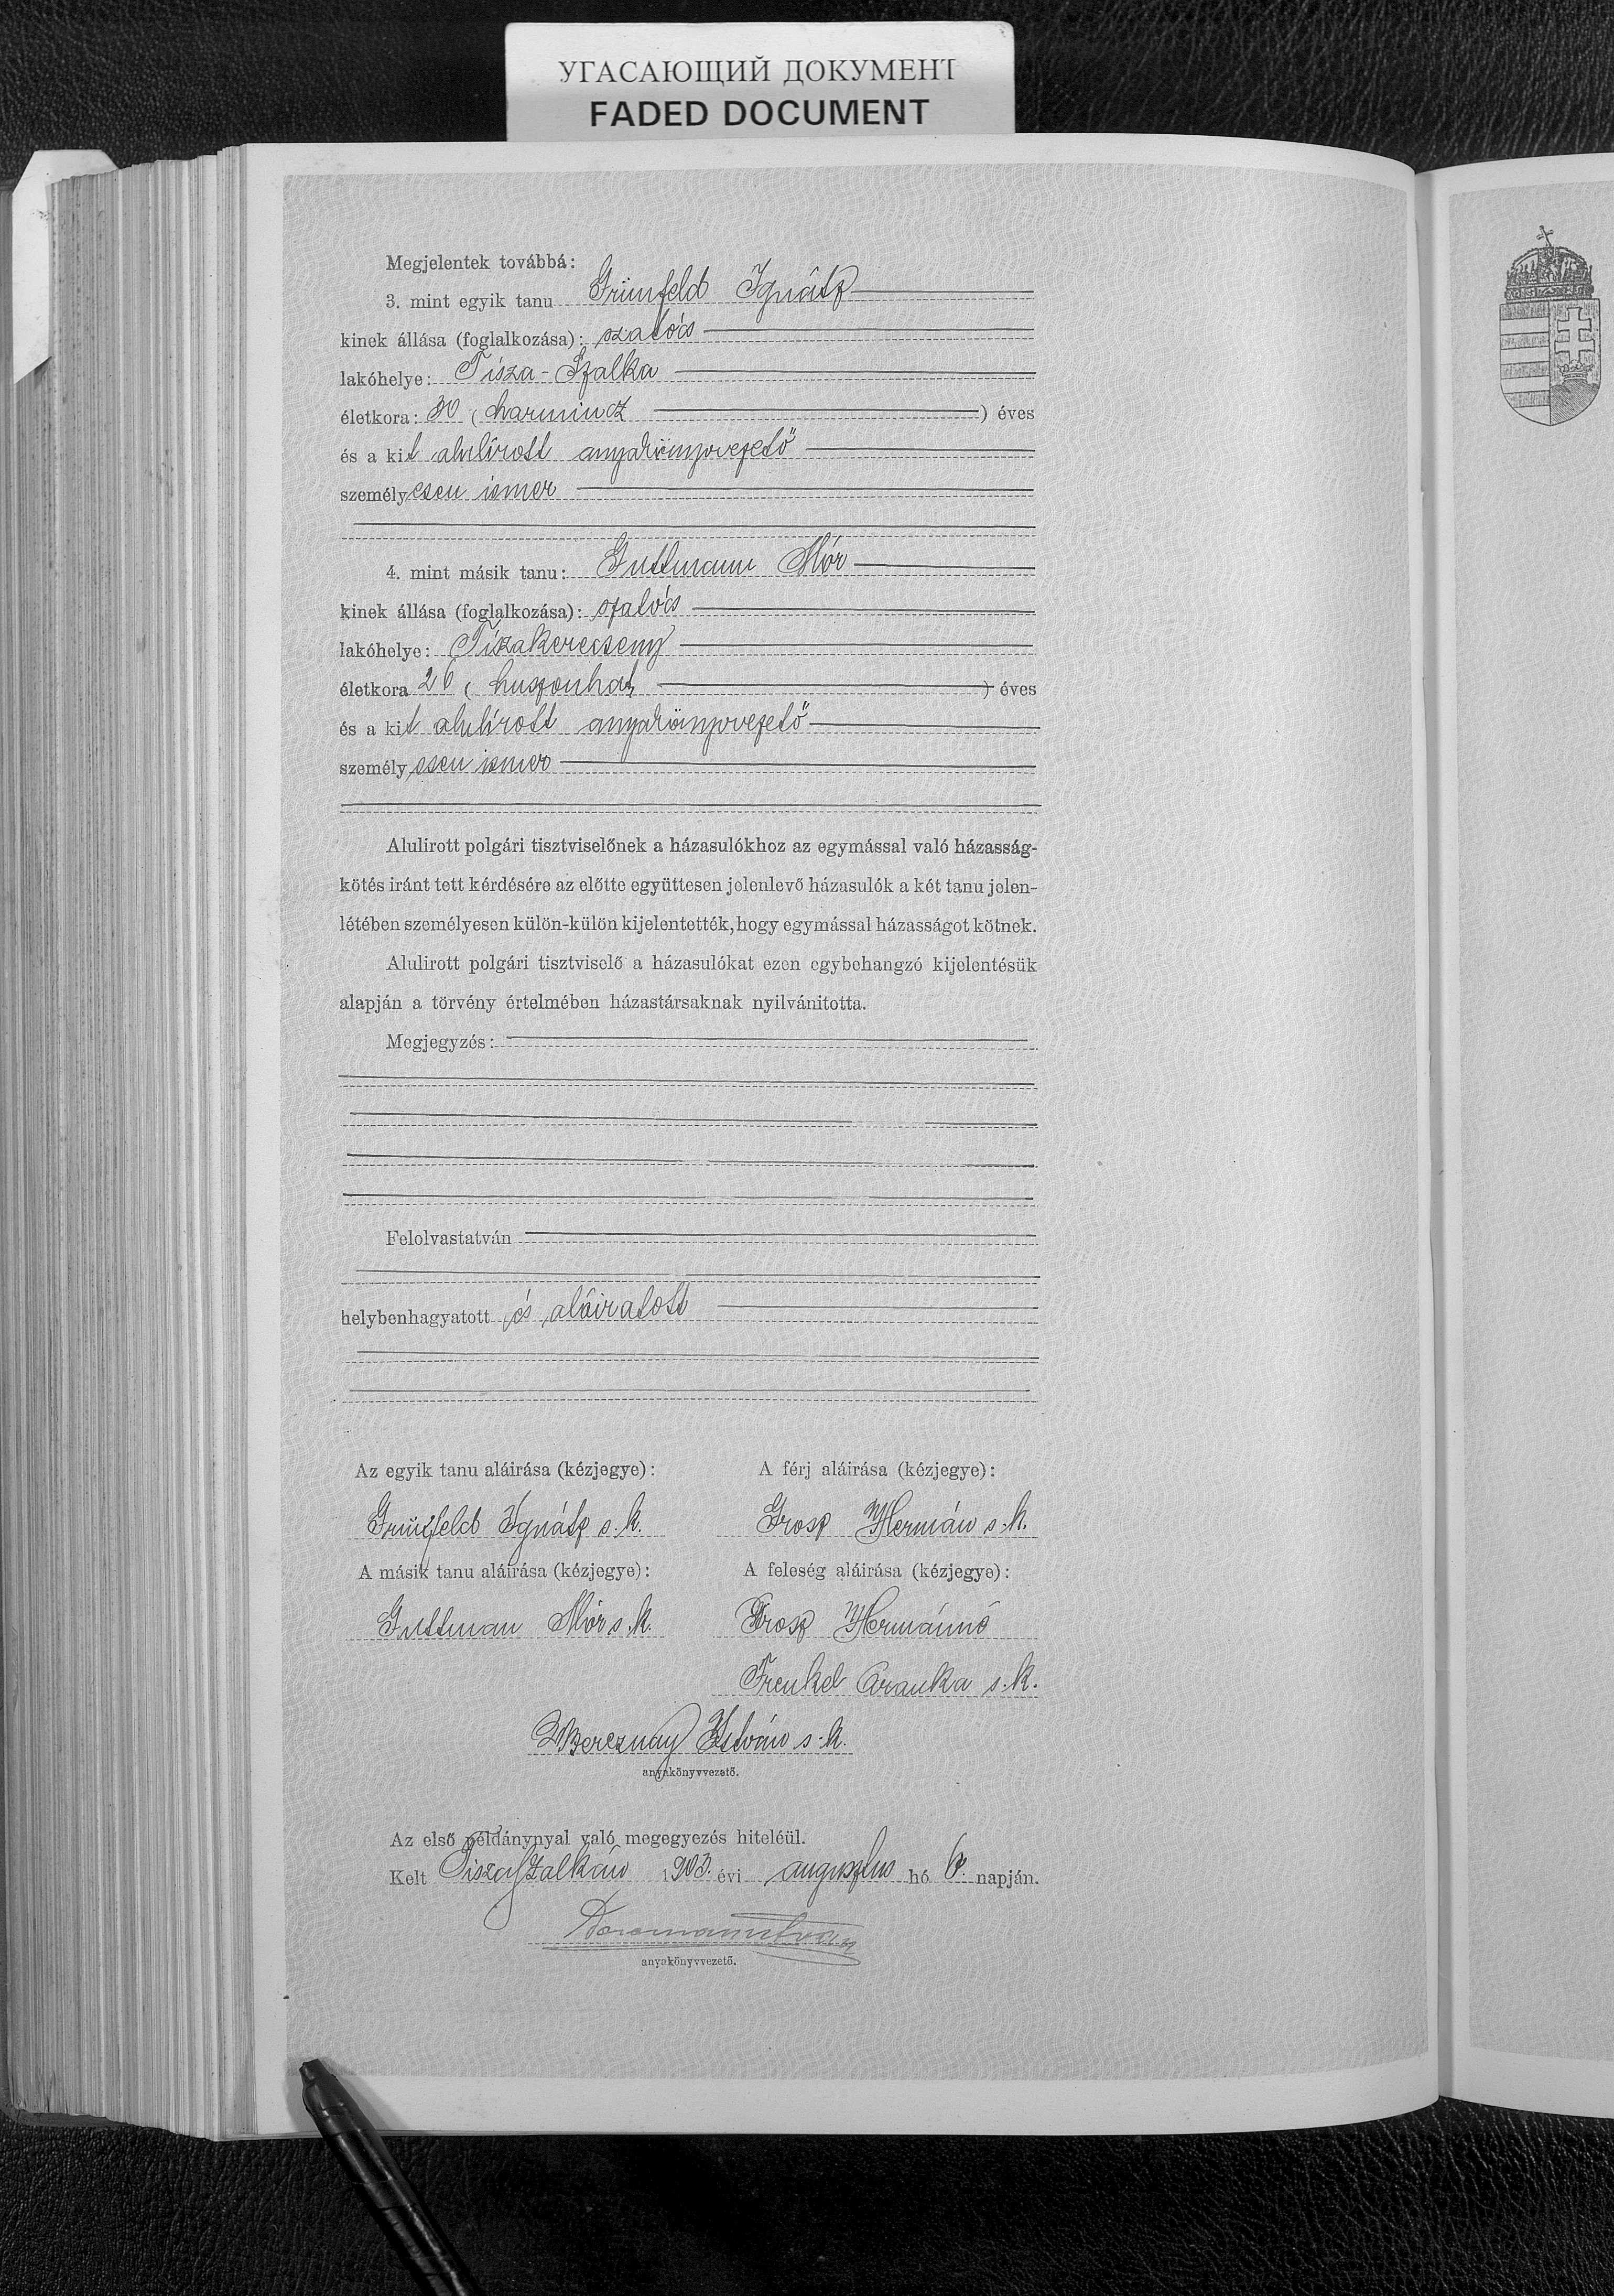 УГАСАЮЩИЙ ДОКУМЕНТ
FADED DOCUMENT
Megjelentek továbbá:
3. mint egyik tanu Grünfeld Ignátz
kinek állása (foglalkozása): szatócs
lakóhelye: Tisza-Szalka
életkora: 30 (harmincz) éves
és a kit alulirott anyakönyvvezető
személyesen ismer
4. mint másik tanu: Guttmann Mór
kinek állása (foglalkozása): szatócs
lakóhelye: Tiszakerecseny
életkora 26 (huszonhat) éves
és a kit alulirott anyakönyvvezető
személyesen ismer
Alulirott polgári tisztviselőnek a házasulókhoz az egymással való házasság-
kötés iránt tett kérdésére az előtte együttesen jelenlevő házasulók a két tanu jelen-
létében személyesen külön-külön kijelentették, hogy egymással házasságot kötnek.
Alulirott polgári tisztviselő a házasulókat ezen egybehangzó kijelentésük
alapján a törvény értelmében házastársaknak nyilvánitotta.
Megjegyzés:
Felolvastatván
helybenhagyatott és aláiratott
Az egyik tanu aláirása (kézjegye): A férj aláirása (kézjegye):
Grünfeld Ignátz s. k. Grosz Hermán s. k.
A másik tanu aláirása (kézjegye): A feleség aláirása (kézjegye):
Guttman Mór s. k. Grosz Hermánné
Frenkel Aranka s. k.
Bereznay István s. k.
anyakönyvvezető.
Az első példánynyal való megegyezés hiteléül.
Kelt Tiszaszalkán 1903. évi augusztus hó 6. napján.
anyakönyvvezető.